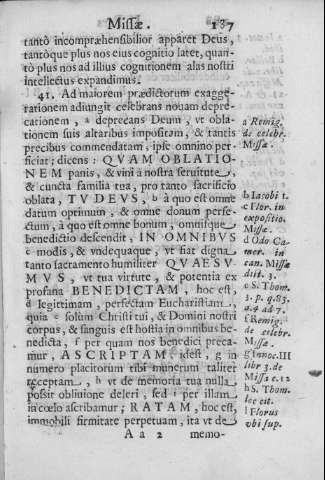 Missæ. 187
tantò incompræhensibilior apparet Deus,
tantòque plus nos eius cognitio latet, quan-
tò plus nos ad illius cognitionem alas nostri
intellectus expandimus.
41. Ad maiorem prædictorum exagge-
rationem adiungit celebrans nouam depre-
cationem, a deprecans Deum, vt obla-
tionem suis altaribus impositam, & tantis
precibus commendatam, ipse omnino per-
ficiat; dicens: QVAM OBLATIO-
NEM panis, & vini à nostra seruitute,
& cuncta familia tua, pro tanto sacrificio
oblata, TV DEVS, b à quo est omne
datum optimum, & omne donum perfe-
ctum, à quo est omne bonum, omnisque
benedictio descendit, IN OMNIBVS
c modis, & vndequaque, vt fiat digna
tanto sacramento humiliter QVAESV-
MVS, vt tua virtute, & potentia ex
profana BENEDICTAM, hoc est,
d legittimam, perfectam Eucharistiam,
quia e solum Christi tui, & Domini nostri
corpus, & sanguis est hostia in omnibus be-
nedicta, f per quam nos benedici preca-
mur, ASCRIPTAM, idest, g in
numero placitorum tibi munerum taliter
receptam, h vt de memoria tua nulla
possit obliuione deleri, sed i per illam
in cœlo ascribamur; RATAM, hoc est,
immobili firmitate perpetuam, ita vt de
A a 2 memo-
a Remig.
de celebr.
Missæ.
b Iacobi 1.
c Flor. in
expositio.
Missæ.
d Odo Ca-
mer. in
can. Missæ
dist. 3.
e S. Thom.
3. p. q. 83.
a. 4 ad 7.
f Remig.
de celebr.
Missæ.
g Innoc. III
libr 3. de
Missæ c. 12
h S. Thom.
loc cit.
i Florus
vbi sup.